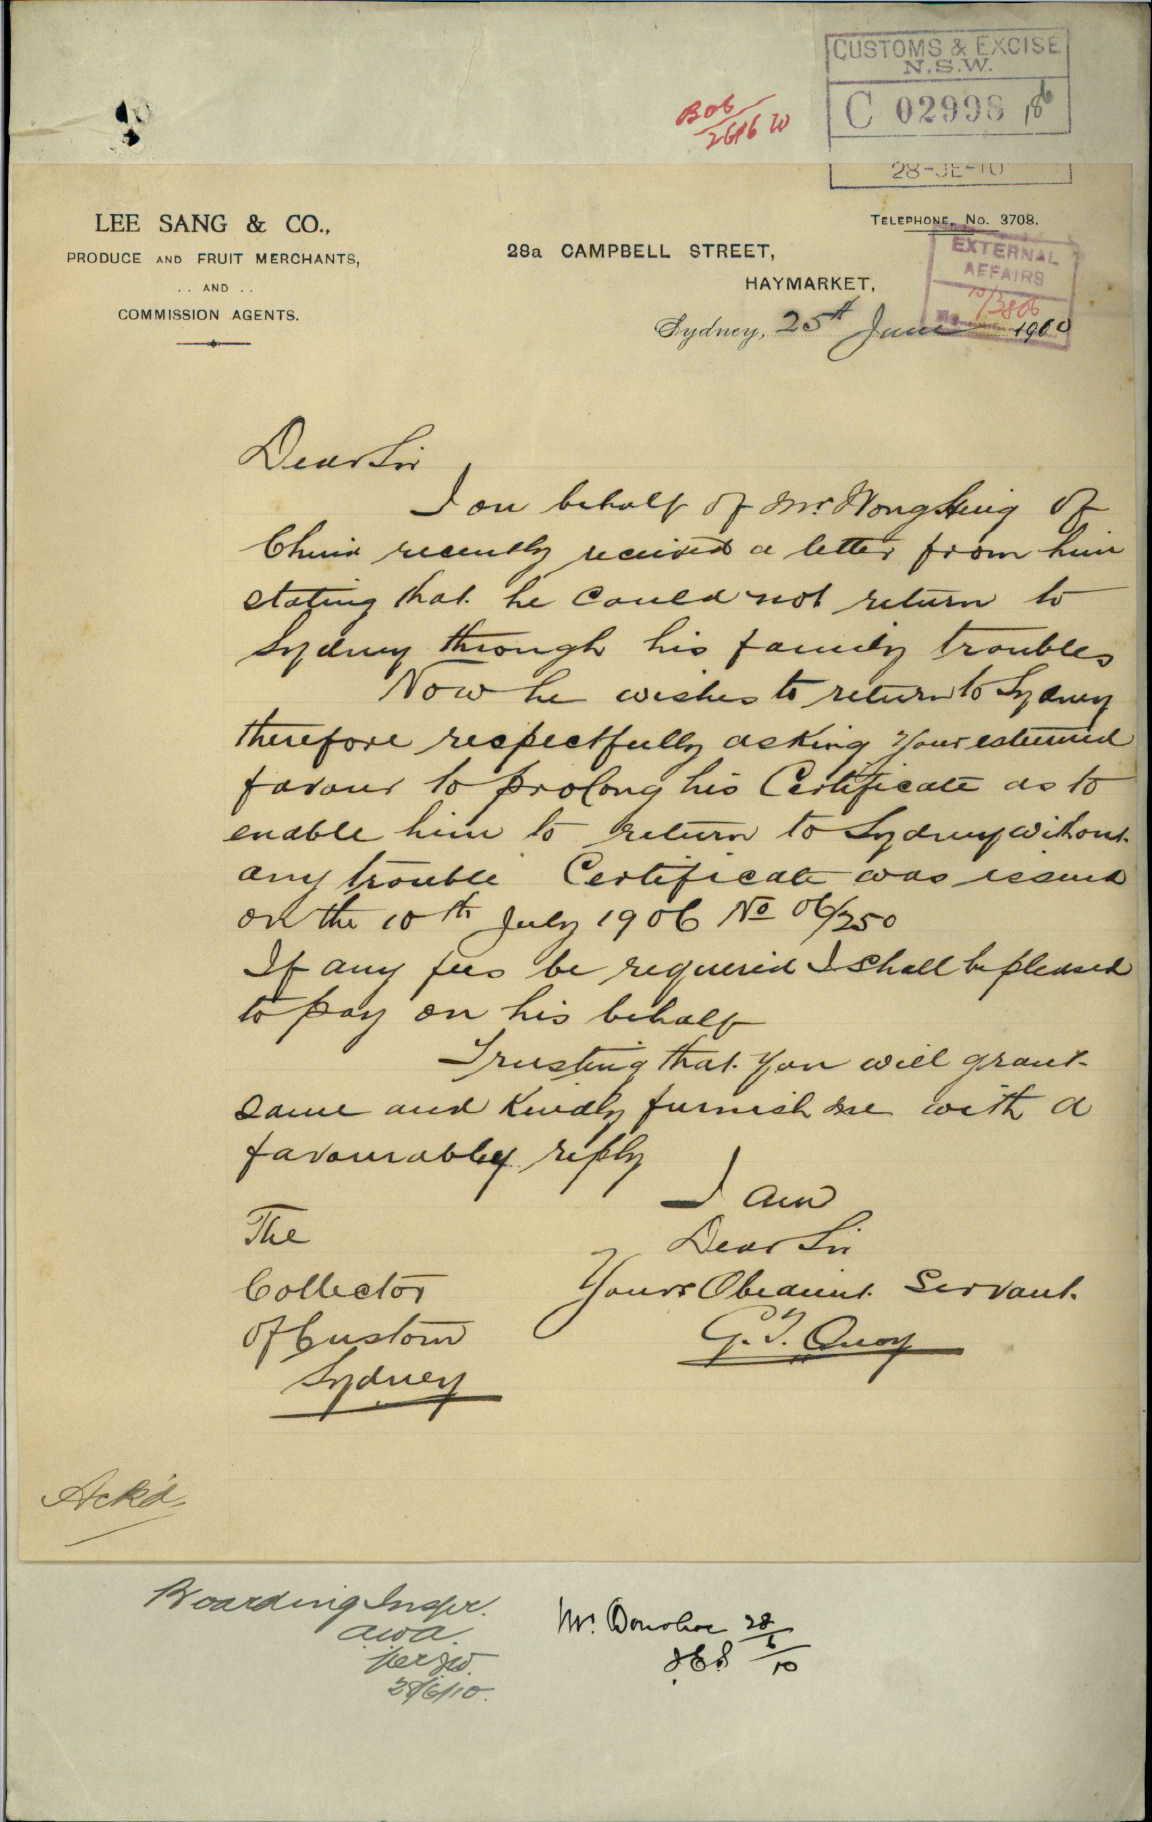 CUSTOMS & EXCISE
N.S.W.
C 02998
28-JE-10
LEE SANG & CO.,
PRODUCE AND FRUIT MERCHANTS,
.. AND ..
COMMISSION AGENTS.
TELEPHONE, No. 3708.
28a CAMPBELL STREET,
HAYMARKET,
EXTERNAL
AFFAIRS
10/3806
Sydney, 25th June 1910
Dear Sir
I on behalf of Mr. Wong Hing of
China recently received a letter from him
stating that he could not return to
Sydney through his family troubles
Now he wishes to return to Sydney
therefore respectfully asking Your esteemed
favour to prolong his Certificate as to
enable him to return to Sydney without
any trouble Certificate was issued
on the 10th July 1906 No 06/250
If any fees be required I shall be pleased
to pay on his behalf
Trusting that you will grant
same and Kindly furnish me with a
favourabley reply
I am
Dear Sir
Yours Obedient Servant
G. T. Quoy
The
Collector
Of Custom
Sydney
Ack'd
Boarding Inspr.
28/6/10.
Mr. Donohoe 28/6/10